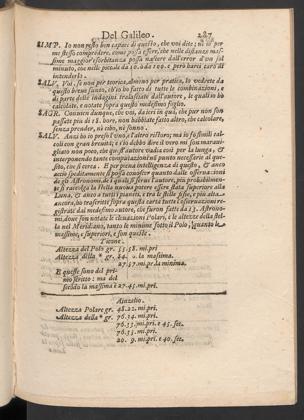 Del Galileo. 287
SIMP. Io non resto ben capace di questo, che voi dite: nè so per
me stesso comprendere, come possa essere, che nelle distanze massime
maggior esorbitanza possa nascere dall'error d'un sol
minuto, che nelle piccole da 10. ò da 100. e però harei caro di
intenderlo.
SALV. Voi, se non per teorica, almeno per pratica, lo vedrete da
questo breve sunto, ch'io ho fatto di tutte le combinazioni, e
di parte delle indagini tralasciate dall'autore, le quali io ho
calcolate, e notate sopra questo medesimo foglio.
SAGR. Convien dunque, che voi, da ieri in quà, che pur non son
passate più di 18. hore, non habbiate fatto altro, che calcolare,
senza prender, nè cibo, nè sonno.
SALV. Anzi hò io preso l'uno, e l'altro ristoro; ma io fò simili calcoli
con gran brevità; e s'io debbo dire il vero mi son maravigliato
non poco, che quest'autore vadia così per la lunga, &
interponendo tante computazioni nè punto necessarie al quesito,
che si cerca. E per piena intelligenza di questo, & anco
acciò speditamente si possa conoscer quanto dalle osservazioni
de gli Astronomi, de i quali si serve l'autore, più probabilmente
si raccolga la stella nuova potere essere stata superiore alla
Luna, & anco a tutti i pianeti, e trà le stelle fisse, e più alta
ancora, hò trascritte sopra questa carta tutte l'osservazioni registrate
dal medesimo autore, che furon fatte da 13. Astronomi,
dove son notate le elevazioni Polari, e le altezze della stella
nel Meridiano, tanto le minime sotto il Polo, quanto le
massime, e superiori, e son queste.
Ticone.
Altezza del Polo gr. 55. 58. mi. pri
Altezza della * gr. 84. 0. la massima.
27. 57. mi. pr. la minima.
E queste sono del primo
scritto: ma del
secondo la minima è 27. 45. mi. pri.
Ainzelio.
Altezza Polare gr. 48. 22. mi. pri.
Altezza della * gr. 76. 34. mi. pri.
76. 33. mi. pri. e 45. sec.
76. 35. mi. pri.
20. 9. mi. pri. e 40. sec.